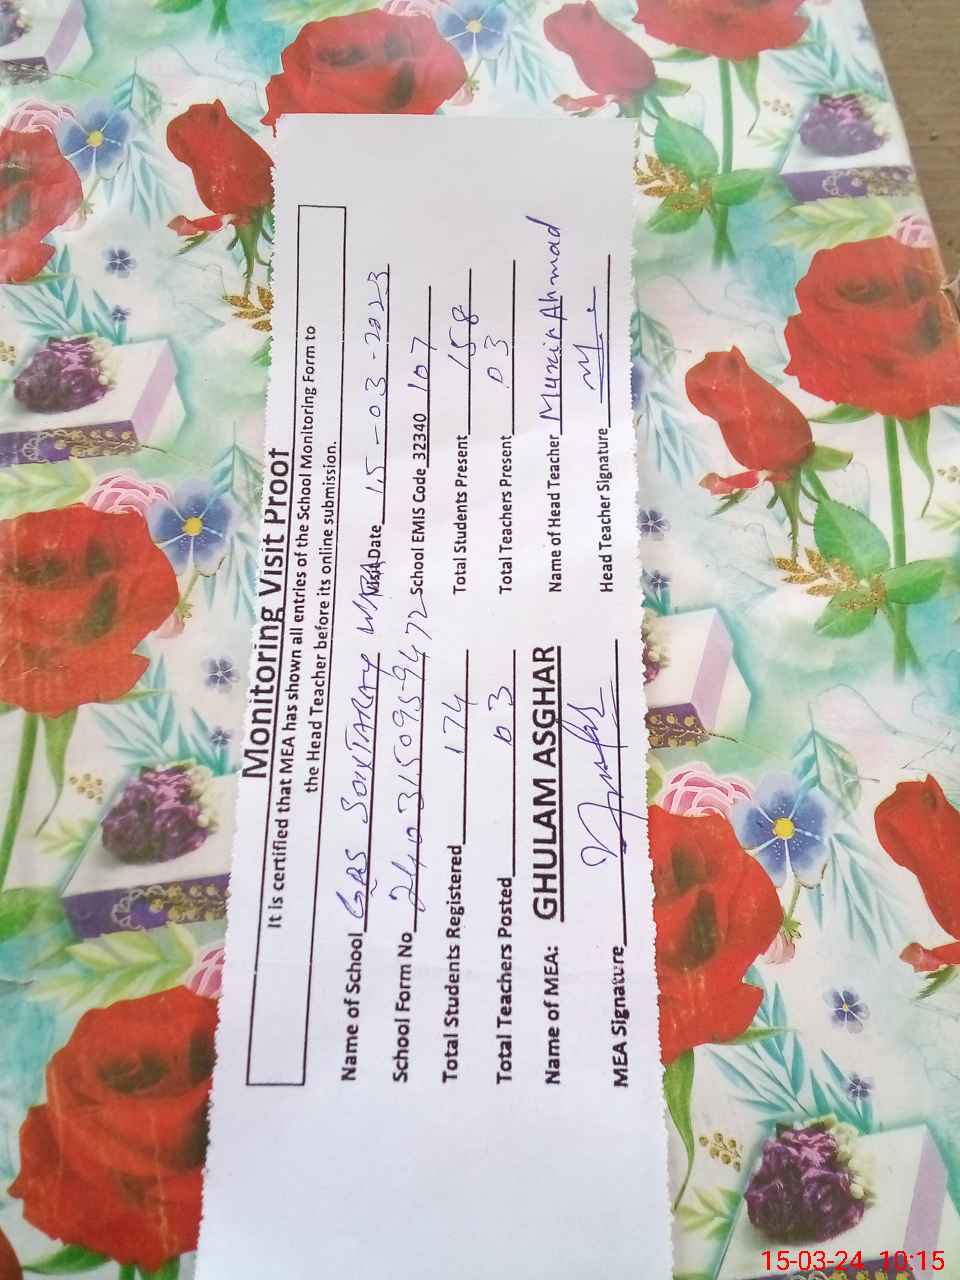 Monitoring Visit Proof
It is certified that MEA has shown all entries of the School Monitoring Form to
the Head Teacher before its online submission.
Name of School GPS SONTARAY Visit Date 15-03-2023
School Form No 2403150959472 School EMIS Code 32340 107
Total Students Registered 174 Total Students Present 158
Total Teachers Posted 03 Total Teachers Present 03
Name of MEA: GHULAM ASGHAR Name of Head Teacher Munir Ahmad
MEA Signature Head Teacher Signature
15-03-24 10:15